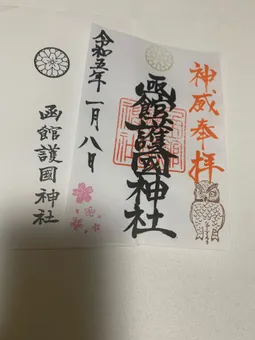 神威奉拝
函館護国神社
令和五年一月八日
函館護国神社